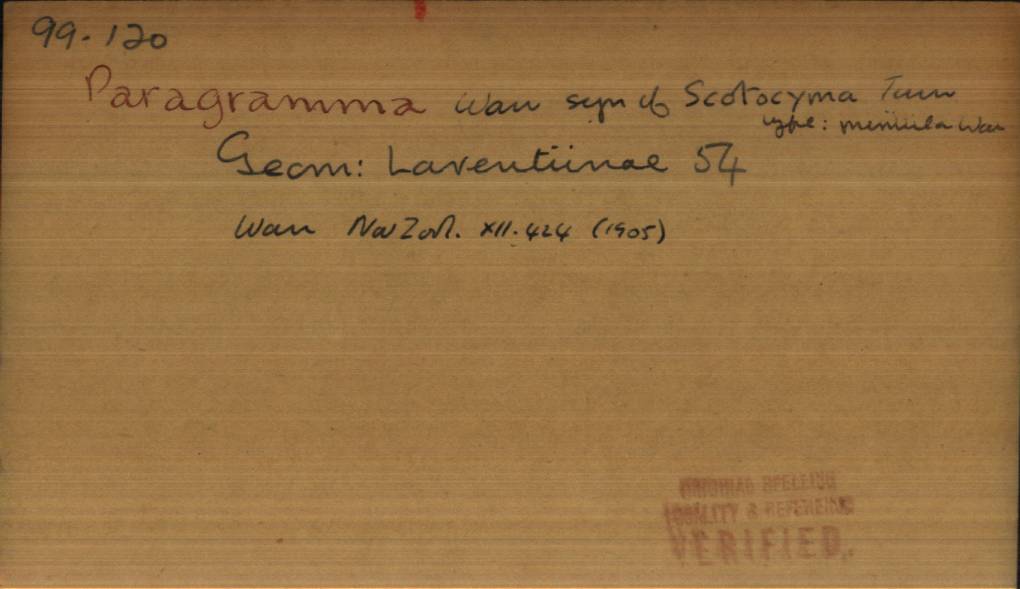 99.120
Paragramma Warr syn of Scotocyma Turn
type: Warr
Geom: Larentiinae 54
Warr Nov Zool. XII. 424 (1905)
ORIGINAL SPELLING
LOCALITY & REFERENCE
VERIFIED.